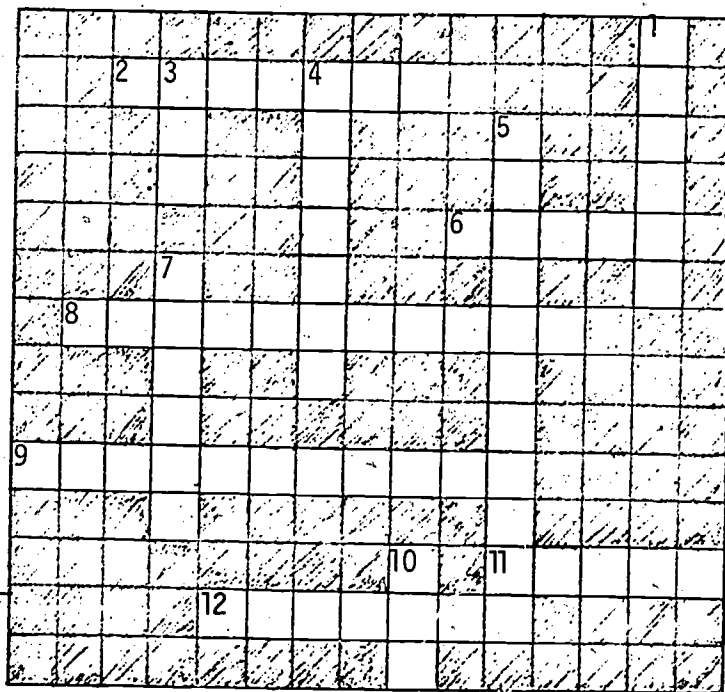 1
2 3 4
5
6
7
8
9
10 11
12